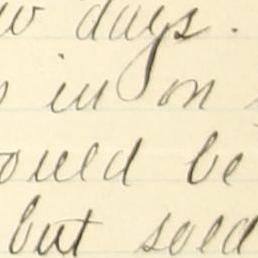 days.
in on
ould be
but sold